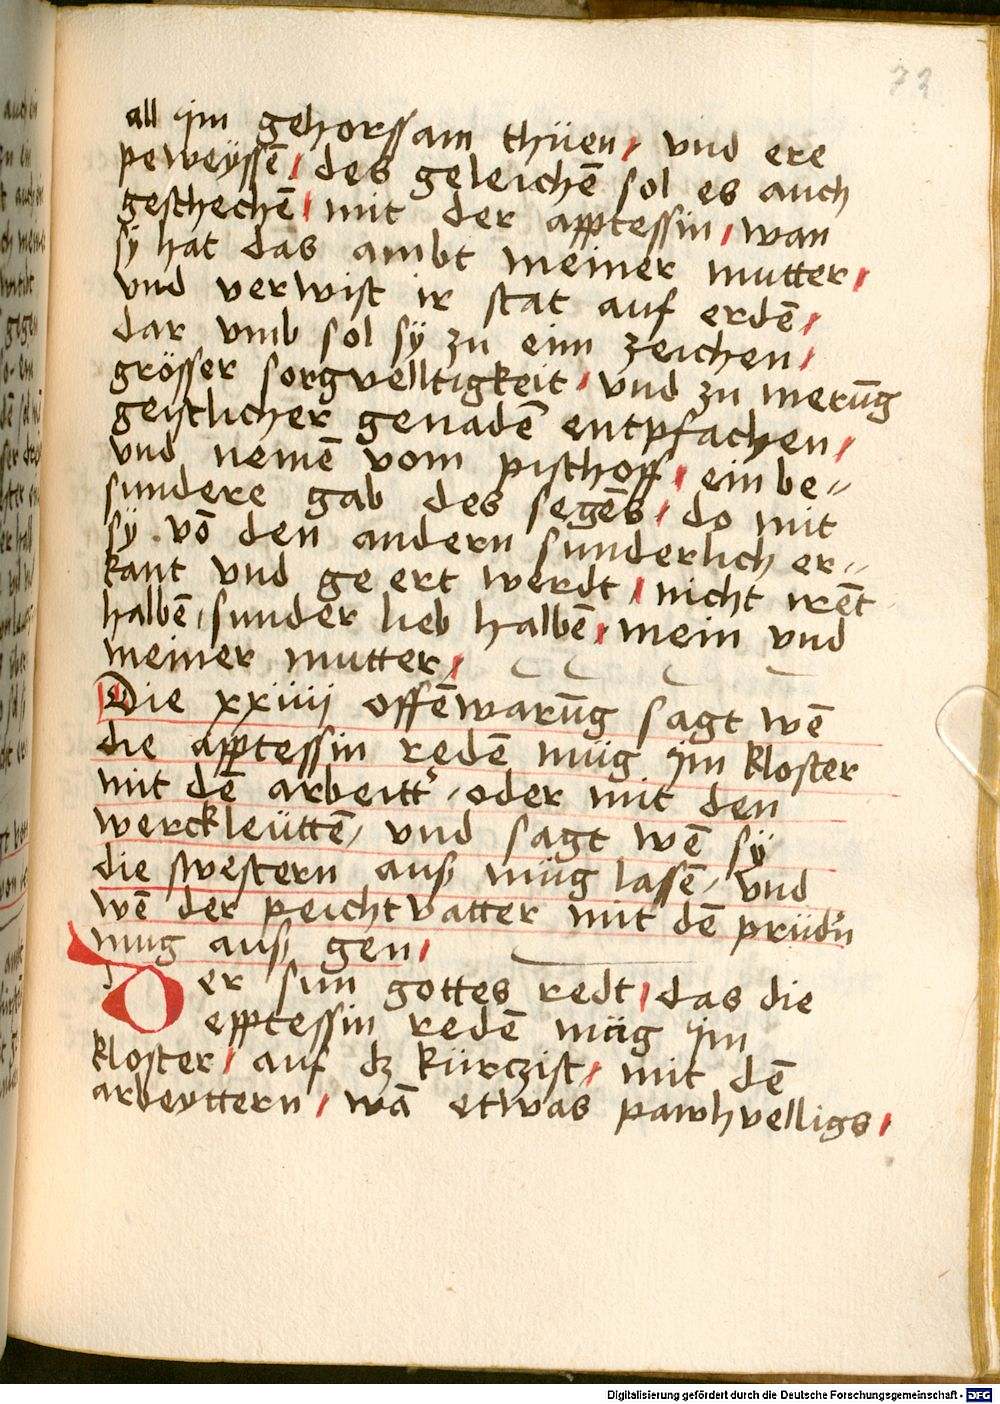 73
all im gehorssam thüen / vnd ere
peweÿssē / des geleichē sol es auch
geschechē / mit der apptessin / wan
sÿ hat das ambt meiner mutter /
vnd verwist ir stat auf erdē /
dar vmb sol sÿ zu eim zeichen /
grösser sorgvelltigkeit / vnd zu merūg
geistlicher genadē entpfachen /
vnd nemē vom pischoff / ein be〃
sundere gab des segēs / do mit
sÿ vō den andern sunderlich er〃
kant vnd ge ert werdt / nicht irēt
halbē / sunder lieb halbē / mein vnd
meiner mutter /
Die xxiiij offēwarūg sagt wē
die apptessin redē müg im kloster
mit dē arbeitt' / oder mit den
werckleüttē / vnd sagt wē sÿ
die swestern auß müg lassē / vnd
wē der peichtvatter mit dē prüd'n
mug auß gen /
Der sun gottes redt / das die
epptessin redē müg im
kloster / auf dz kürczist / mit dē
arbeyttern / wā etwas pawhvelligs /
Digitalisierung gefördert durch die Deutsche Forschungsgemeinschaft - DFG